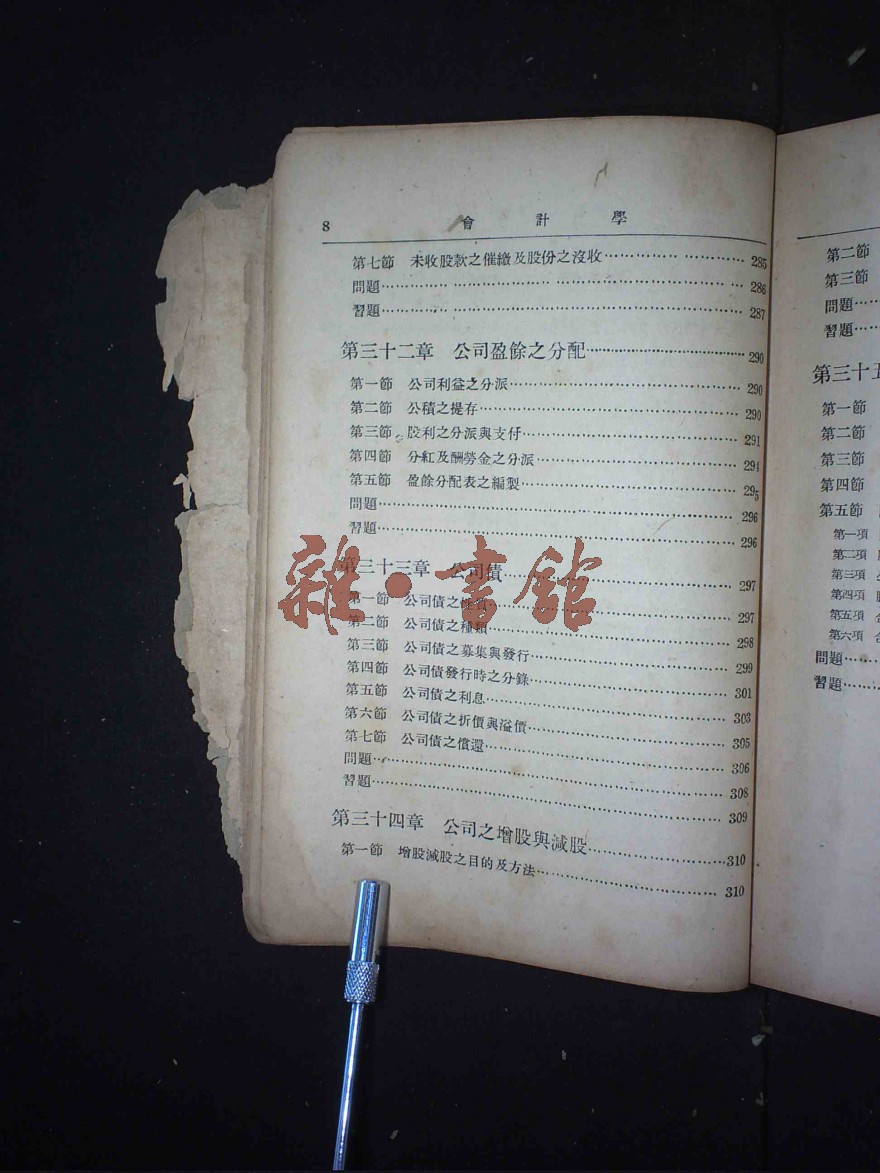 8 會計學
第七節 未收股款之催繳及股份之沒收…………………285
問題…………………………………286
習題…………………………………287
第三十二章 公司盈餘之分配…………………290
第一節 公司利益之分派…………………290
第二節 公積之提存…………………290
第三節 股利之分派與支付…………………291
第四節 分紅及酬勞金之分派…………………294
第五節 盈餘分配表之編製…………………295
問題…………………………………296
習題…………………………………296
第三十三章 公司債…………………297
第一節 公司債之性質…………………297
第二節 公司債之種類…………………298
第三節 公司債之募集與發行…………………299
第四節 公司債發行時之分錄…………………301
第五節 公司債之利息…………………303
第六節 公司債之折價與溢價…………………305
第七節 公司債之償還…………………306
問題…………………………………308
習題…………………………………309
第三十四章 公司之增股與減股…………………310
第一節 增股減股之目的及方法…………………310
雜·書館
第二節
第三節
問題……
習題……
第三十五
第一節
第二節
第三節
第四節
第五節
第一項
第二項
第三項
第四項
第五項
第六項
問題……
習題……